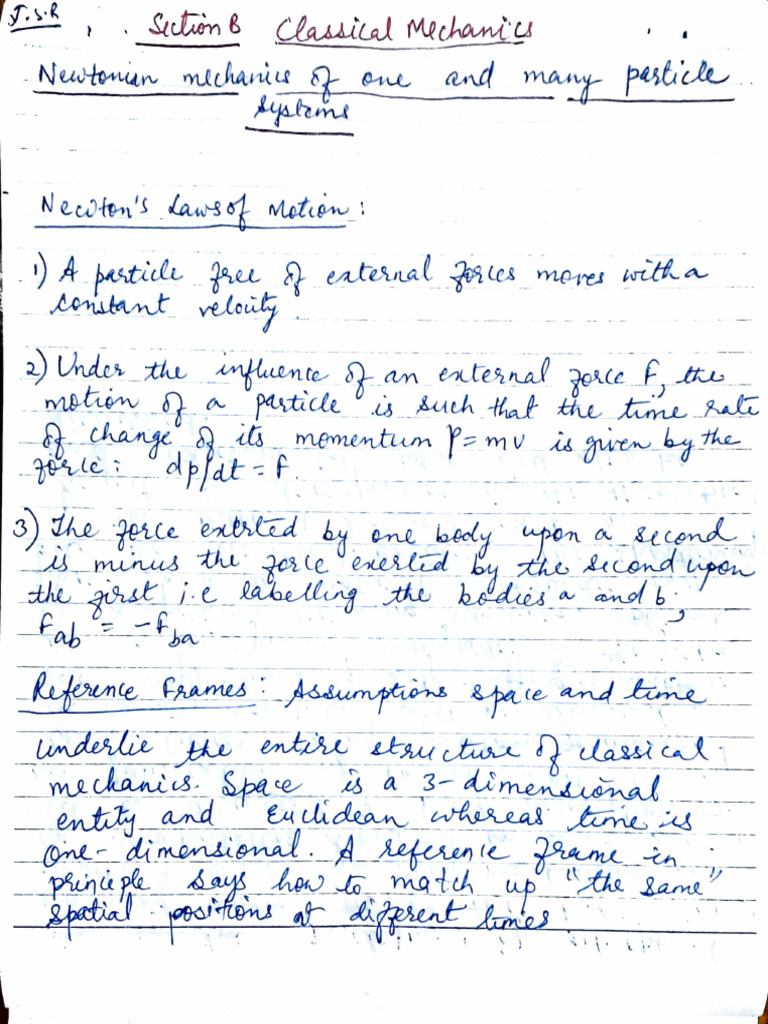 J.S.R
Section B Classical Mechanics
Newtonian mechanics of one and many particle
systems
Newton's Laws of Motion :
1) A particle free of external forces moves with a
constant velocity.
2) Under the influence of an external force F, the
motion of a particle is such that the time rate
of change of its momentum P = mv is given by the
force : dp/dt = f.
3) The force exerted by one body upon a second
is minus the force exerted by the second upon
the first i.e labelling the bodies a and b ;
fab = -fba.
Reference Frames : Assumptions space and time
underlie the entire structure of classical
mechanics. Space is a 3-dimensional
entity and Euclidean whereas time is
one-dimensional. A reference frame in
principle says how to match up "the same"
spatial positions at different times.